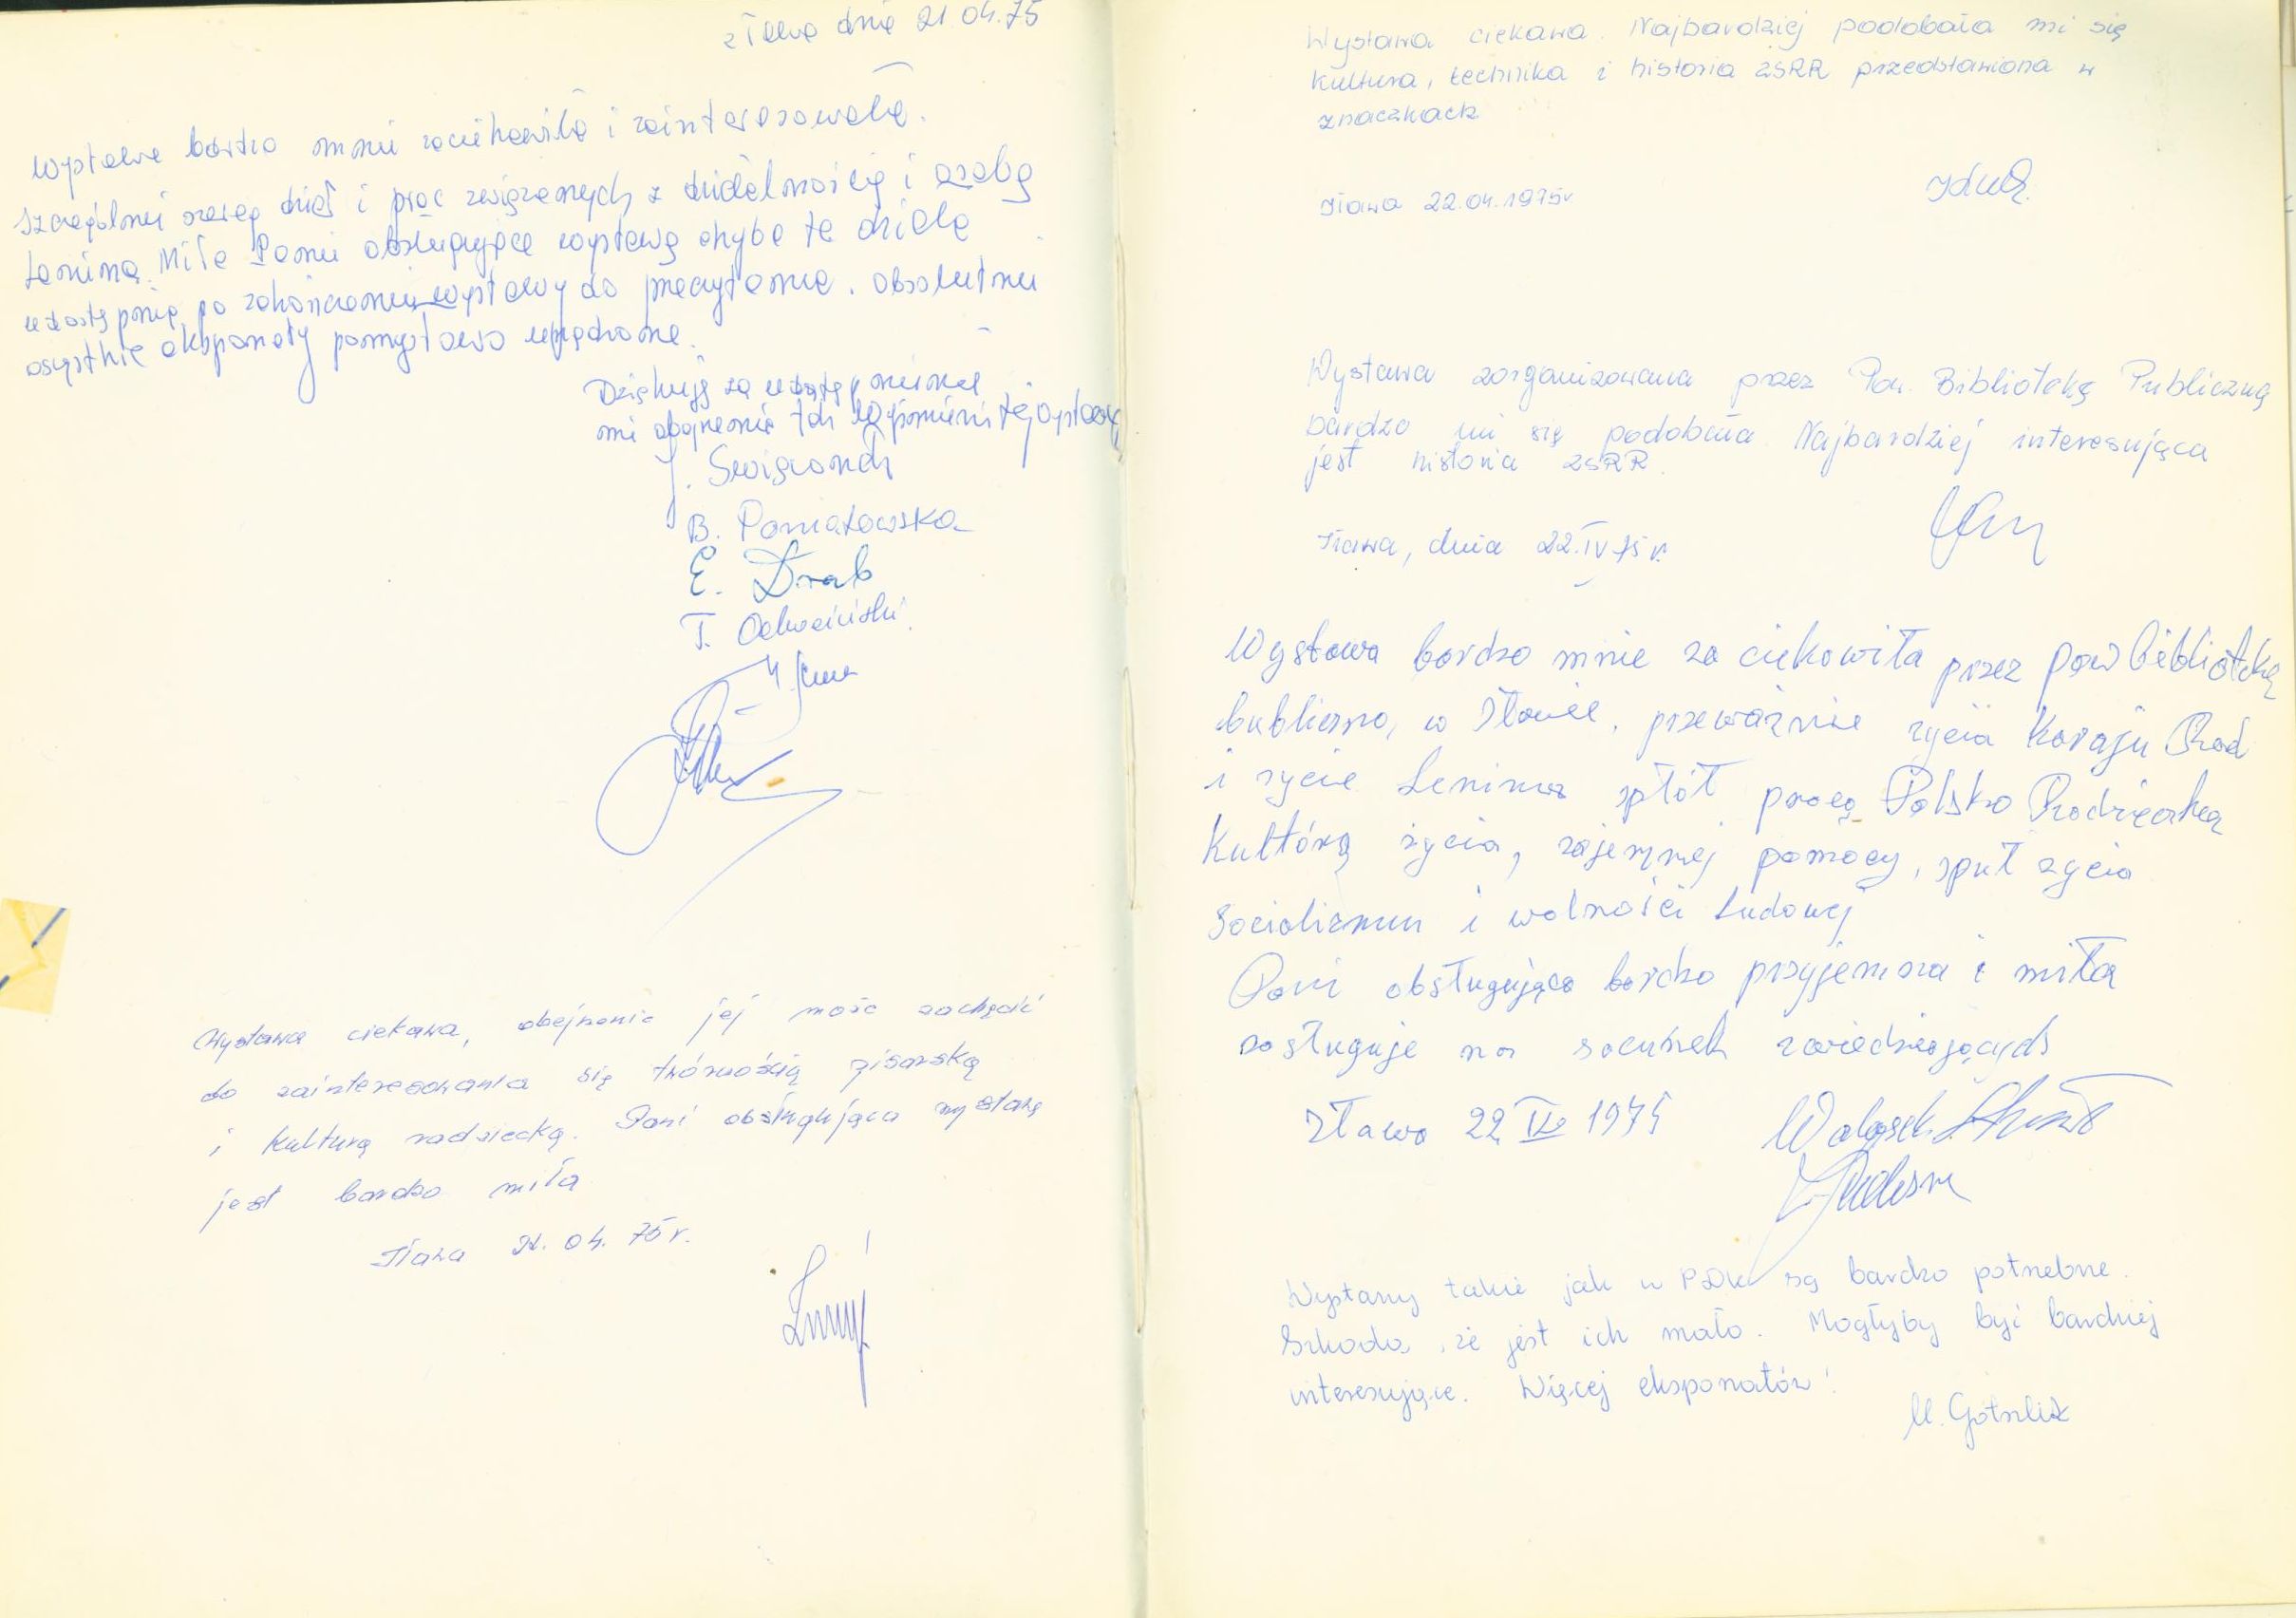 dnia 21.04.75
Wystawa bardzo mnie zaciekawiła i zainteresowała.
szczególnie szereg dzieł i prac związanych z działalnością i osobą
Lenina. Miłe Panie obsługujące wystawę chyba te dzieła
udostępnią po zakończeniu wystawy do przeczytania. Absolutnie
wszystkie eksponaty pomysłowo urządzone.
Dziękuję za udostępnienie
mi obejrzenia tej wystawy
J.
B. Poniatowska
E. Drab
T.
Wystawa ciekawa, obejrzenie jej może zachęcić
do zainteresowania się twórnością pisarską
i kulturą radziecką. Pani obsługująca wystawę
jest bardzo miła
Iława 21. 04. 75 r.
Wystawa ciekawa. Najbardziej podobała mi się
kultura, technika i historia ZSRR przedstawiona w
znaczkach
Iława 22.04.1975r
Wystawa zorganizowana przez Pow. Bibliotekę Publiczną
bardzo mi się podobała. Najbardziej interesująca
jest historia ZSRR.
Iława, dnia 22.IV 75 r.
Wystawa bardzo mnie za ciekowiła przez pow bibliotekę
bubliczno, w Iławie, przeważnie życia Koraju Rad
i życie Lenina spłót pracą Polsko Radziecką
Kultórą życia, zajemnej pomocy, sput życia
Socializmu i wolności Ludowej
Pani obsługująca bardzo przyjemna i miła
zasługuje na sacunek zwiedziających
Iława 22 IV 1975
Wystawy takie jak w PDK są bardzo potrzebne.
Szkoda, że jest ich mało. Mogłyby być bardziej
interesujące. Więcej eksponatów!